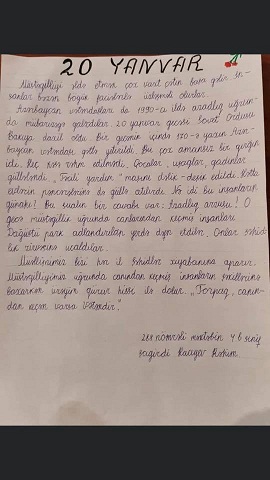 20 YANVAR
Müstəqilliyi əldə etmək çox vaxt çətin başa gəlir. İn-
sanlar bəzən böyük faciələrlə üzləşməli olurlar.
Azərbaycan vətəndaşları da 1990-cı ildə azadlıq uğrun-
da mübarizəyə qalxdılar. 20 yanvar gecəsi Sovet Ordusu
Bakıya daxil oldu. Bir gecənin içində 130-a yaxın Azər-
baycan vətəndaşı qətlə yetirildi. Bu çox amansız bir qırğın
idi. Heç kəsə rəhm edilmədi. Qocalar, uşaqlar, qadınlar
güllələndi. "Təcili yardım" maşını dəlik-deşik edildi. Hətta
evlərin pəncərələrinə də güllə atılırdı. Nə idi bu insanların
günahı? Bu sualın bir cavabı var: Azadlıq arzusu! O
gecə müstəqillik uğrunda canlarından keçmiş insanları
Dağüstü park adlandırılan yerdə dəfn etdilər. Onlar şəhid-
lik zirvəsinə ucaldılar.
Müəllimimiz bizi hər il Şəhidlər xiyabanına aparır.
Müstəqilliyimiz uğrunda canından keçmiş insanların şəkillərinə
baxarkən ürəyim qürur hissi ilə dolur. "Torpaq, uğrun-
dan keçən varsa Vətəndir."
288 nömrəli məktəbin 4 b sinif
şagirdi